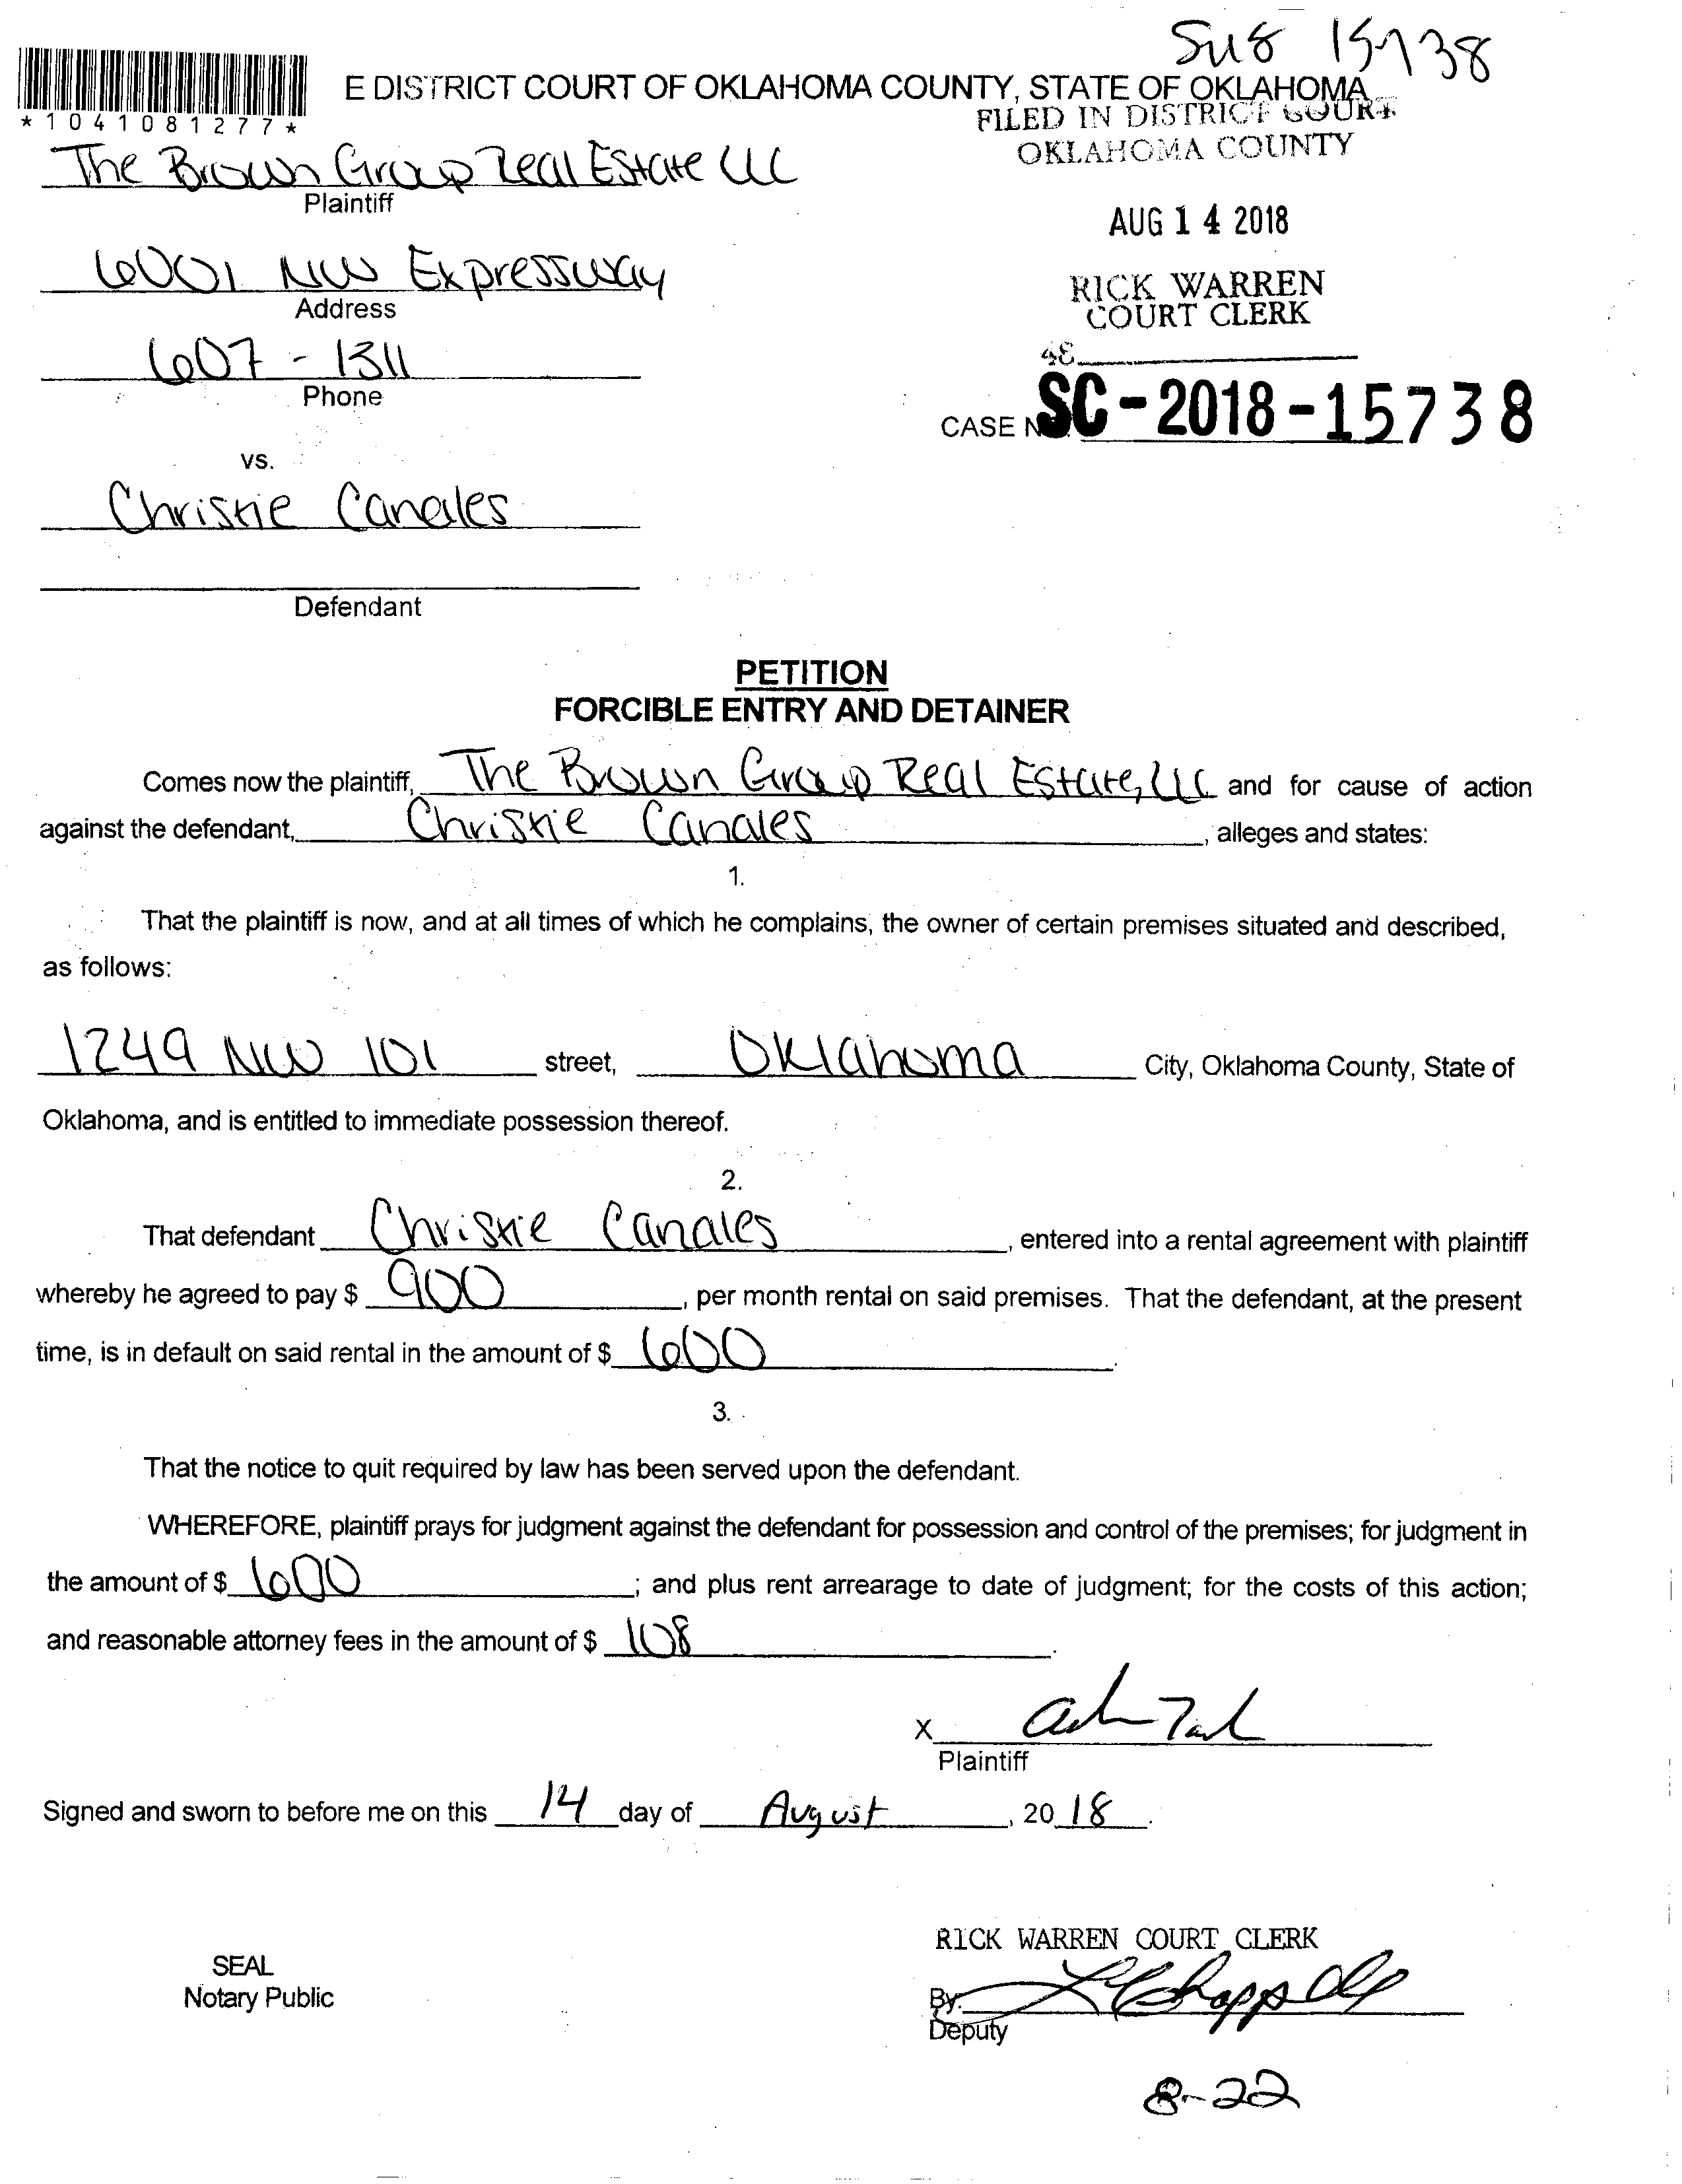 SU8 15738
E DISTRICT COURT OF OKLAHOMA COUNTY, STATE OF OKLAHOMA
FILED IN DISTRICT COURT
*1041081277*
OKLAHOMA COUNTY
The Brown Group Real Estate LLC
Plaintiff
AUG 14 2018
6001 NW Expressway
Address
RICK WARREN
COURT CLERK
607-1311
48
Phone
CASE N SC-2018-15738
vs.
Christie Canales
Defendant
PETITION
FORCIBLE ENTRY AND DETAINER
Comes now the plaintiff, The Brown Group Real Estate, LLC and for cause of action
against the defendant, Christie Canales, alleges and states:
1.
That the plaintiff is now, and at all times of which he complains, the owner of certain premises situated and described,
as follows:
1249 NW 101 street, Oklahoma City, Oklahoma County, State of
Oklahoma, and is entitled to immediate possession thereof.
2.
That defendant Christie Canales, entered into a rental agreement with plaintiff
whereby he agreed to pay $ 900, per month rental on said premises. That the defendant, at the present
time, is in default on said rental in the amount of $ 600.
3.
That the notice to quit required by law has been served upon the defendant.
WHEREFORE, plaintiff prays for judgment against the defendant for possession and control of the premises; for judgment in
the amount of $ 600; and plus rent arrearage to date of judgment; for the costs of this action;
and reasonable attorney fees in the amount of $ 108.
X
Plaintiff
Signed and sworn to before me on this 14 day of August, 2018.
RICK WARREN COURT CLERK
SEAL
Notary Public
By.
Deputy
8-22